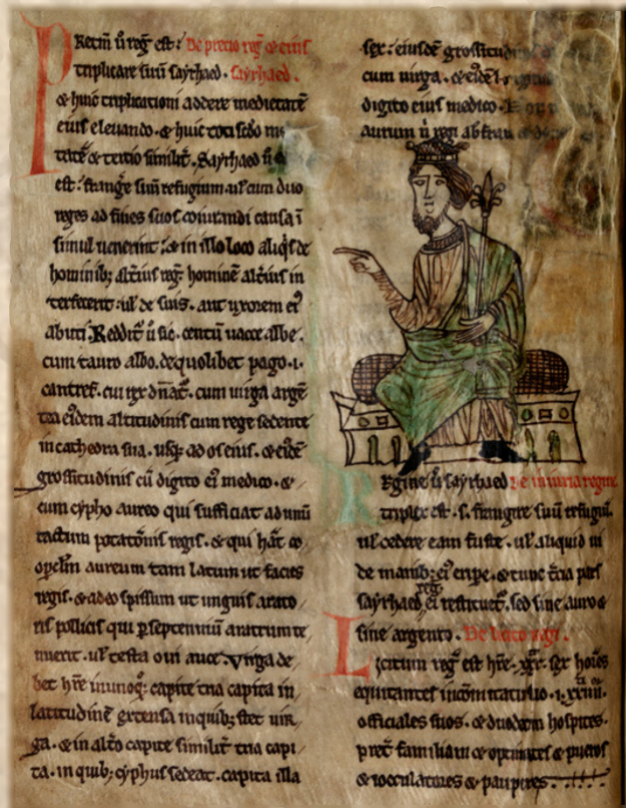 Preciū ů regˢ est: De precio regˢ & eius
triplicare suū sayrhaed. Sayrhaed.
& huic triplicationi addere medietatē
eius eleuando. & huic toti scđo me
tate & tertio similiť. Sayrhaed ů
est: frang̛e suū refugium ul cum duo
reges ad fines suos coniurandi causa ī
simul uenerint: & in illo loco aliqˢ de
hominib; alťius regˢ hominē alťius in
terfecerit: ul de suis. aut uxorem eiˢ
abuti. Reddiť ů sic. centū uacce albe.
cum tauro albo. de quolibet pago .i.
cantref. cui rex dn̄ať. cum uirga argē
tea eidem altitudinis cum rege sedente
in cathedra sua. usq; ad os eius. & eidē
grossitudinis cū digito eiˢ medico. &
cum cypho aureo qui sufficiat ad unū
tactum potatōnis regis. & qui hāt co
opclm aureum tam latum ut facies
regis. & adeo spissum ut unguis arato
ris pollicis qui p septennium aratrum te
nuerit. ul testa oui auce. Virga de
bet hr̄e in unoq; capite tria capita in
latitudinē extensa in quib; stet uir
ga. & in alťo capite similiť tria capi
ta. in quib; cyphus sedeat. capita illa
sex: eiusdē grossitudi
cum uirga. & eidē
digito eius medico.
aurum ů
Regine ů sayrhaed De iniuria regine
triplex est. s. frangere suū refugiū.
ul cedere eam fuste. ul aliquid ui
de manib; eiˢ eripe. & tunc tr̄cia pars
sayrhaed regˢ ei restitueť. sed sine auro &
sine argento. De licito regi.
Licitum regˢ est hr̄e .xxx. sex hoīes
equitantes in comitatu suo .i. xxiiii.
officiales suos. & duodecim hospites.
preť familiam & optimates & pueros
& ioculatores & pauperes.